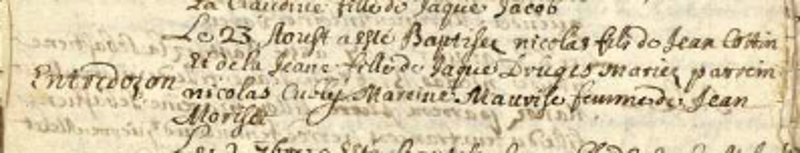 La Claudine fille de Jaque Jacob
Le 23 Aoust a esté Baptisez nicolas fils de Jean Cottin
Et de la Jeane fille de Jaque Druges mariez parrein
Entredozon
nicolas Mareine Mauvise femme de Jean
Morisse